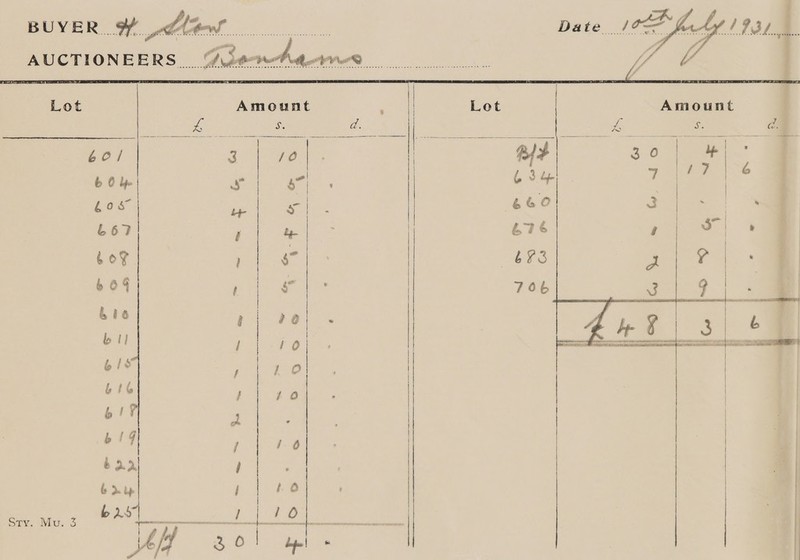 BUYER H. Stow Date 10th July 1931
AUCTIONEERS Bonhams
Lot Amount Lot Amount
£ s. d. £ s. d.
601 3 10 . B/f 30 4 .
604 5 5 . 634 7 17 6
605 4 5 . 660 3 . .
607 1 4 . 676 1 5 .
608 1 5 . 683 2 8 .
609 1 5 . 706 3 9 .
610 1 10 . £48 3 6
611 1 10 .
615 1 10 .
616 1 10 .
618 2 . .
619 1 10 .
622 1 . .
624 1 10 .
625 1 10
Sty. Mu. 3
b/f 30 4 .